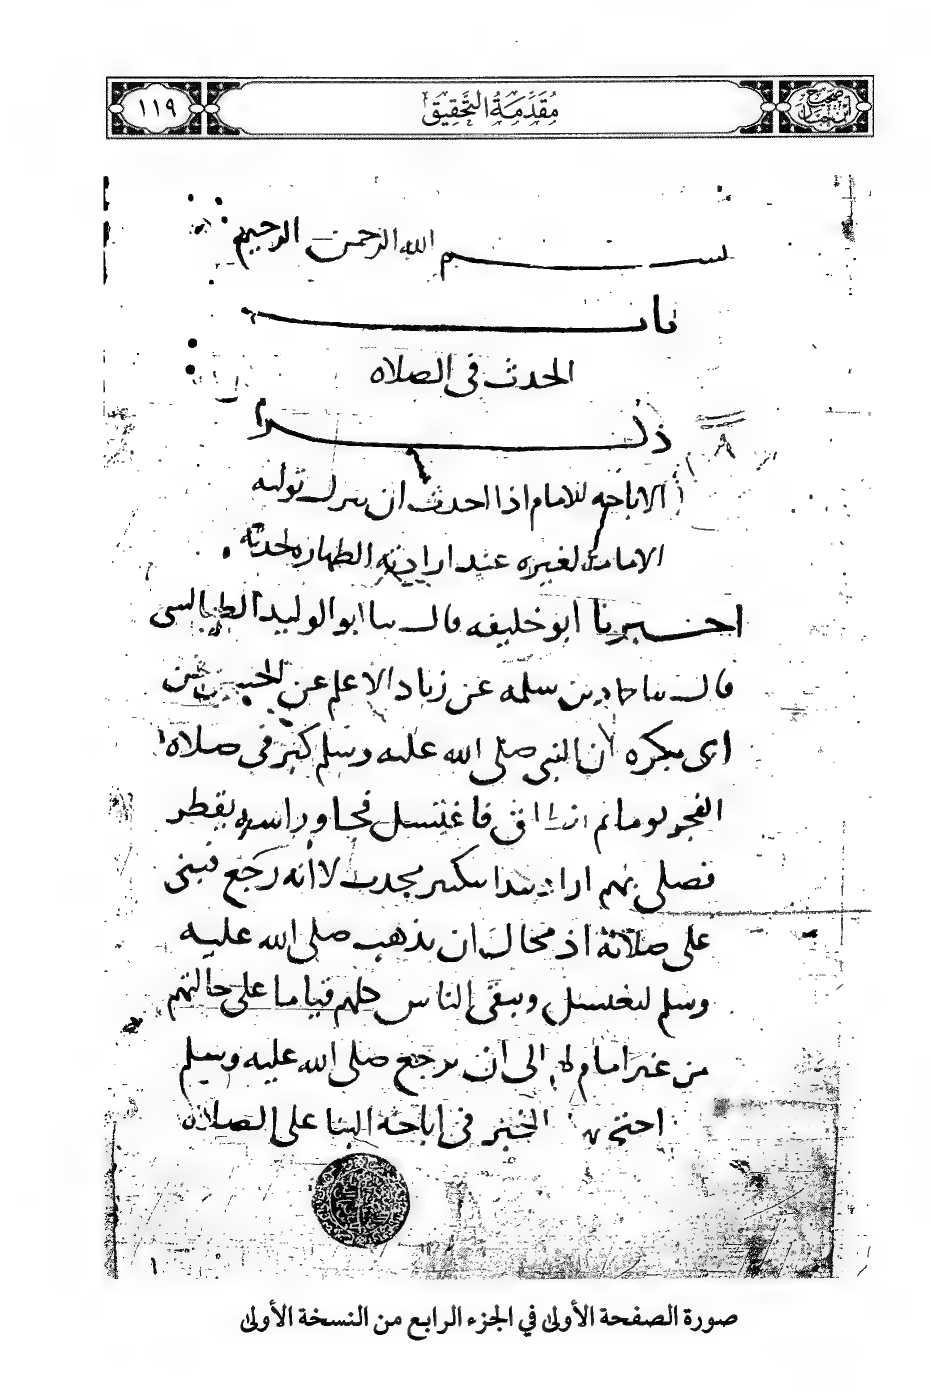 صحيح ابن حبان
مُقَدِّمَةُ التَّحْقِيقِ
١١٩
بسم الله الرحمن الرحيم
باب
الحدث في الصلاه
ذكر
الاباحه للامام اذا احدث ان يترك توليه
الامامة لغيره عند ارادته الطهاره لحدثه
اخبرنا ابو خليفه قال ثنا ابو الوليد الطيالسي
قال ثنا حماد بن سلمه عن زياد الاعلم عن الحسن عن
ابي بكره ان النبي صلى الله عليه وسلم كبر في صلاه
الفجر يوما ثم فاغتسل فجا وراسه يقطر
فصلى بهم اراد بتكبير محدث لا انه رجع فبنى
على صلاته اذ محال ان يذهب صلى الله عليه
وسلم ليغتسل ويبقى الناس كلهم قياما على حالتهم
من غير امام لهم الى ان يرجع صلى الله عليه وسلم
احتج الخبر في اباحة البنا على الصلاه
صورة الصفحة الأولى في الجزء الرابع من النسخة الأولى